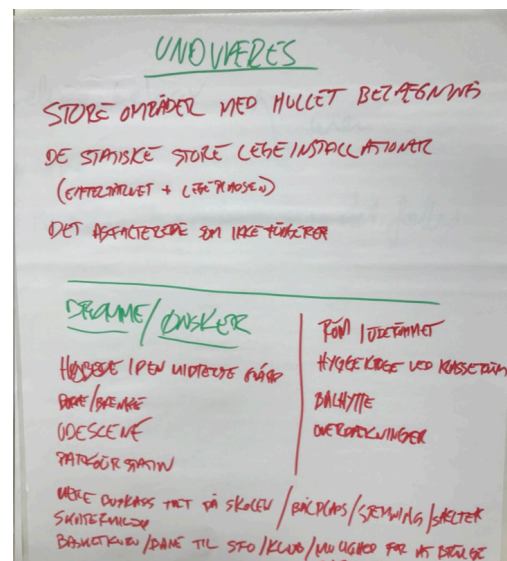 UNDVÆRES
STORE OMRÅDER MED HULLET BELÆGNING
DE STATISKE STORE LEGEINSTALLATIONER
(EIFFELTÅRNET + LEGEPLADSEN)
DET ASFALTEREDE SOM IKKE FUNGERER
DRØMME/ØNSKER
I DEN MIDTERSTE GÅRD
BORE/BÆNKE
UDESCENE
PARKOUR STATIN
RUM I UDERUMMET
HYGGEKROGE VED KLASSERUM
BÅLHYTTE
OVERDÆKNINGER
MERE TÆT PÅ SKOLEN / BÅLPLADS / /
SKATERMILJØ
BASKETKURV/BANE TIL SFO/KLUB/MULIGHED FOR AT